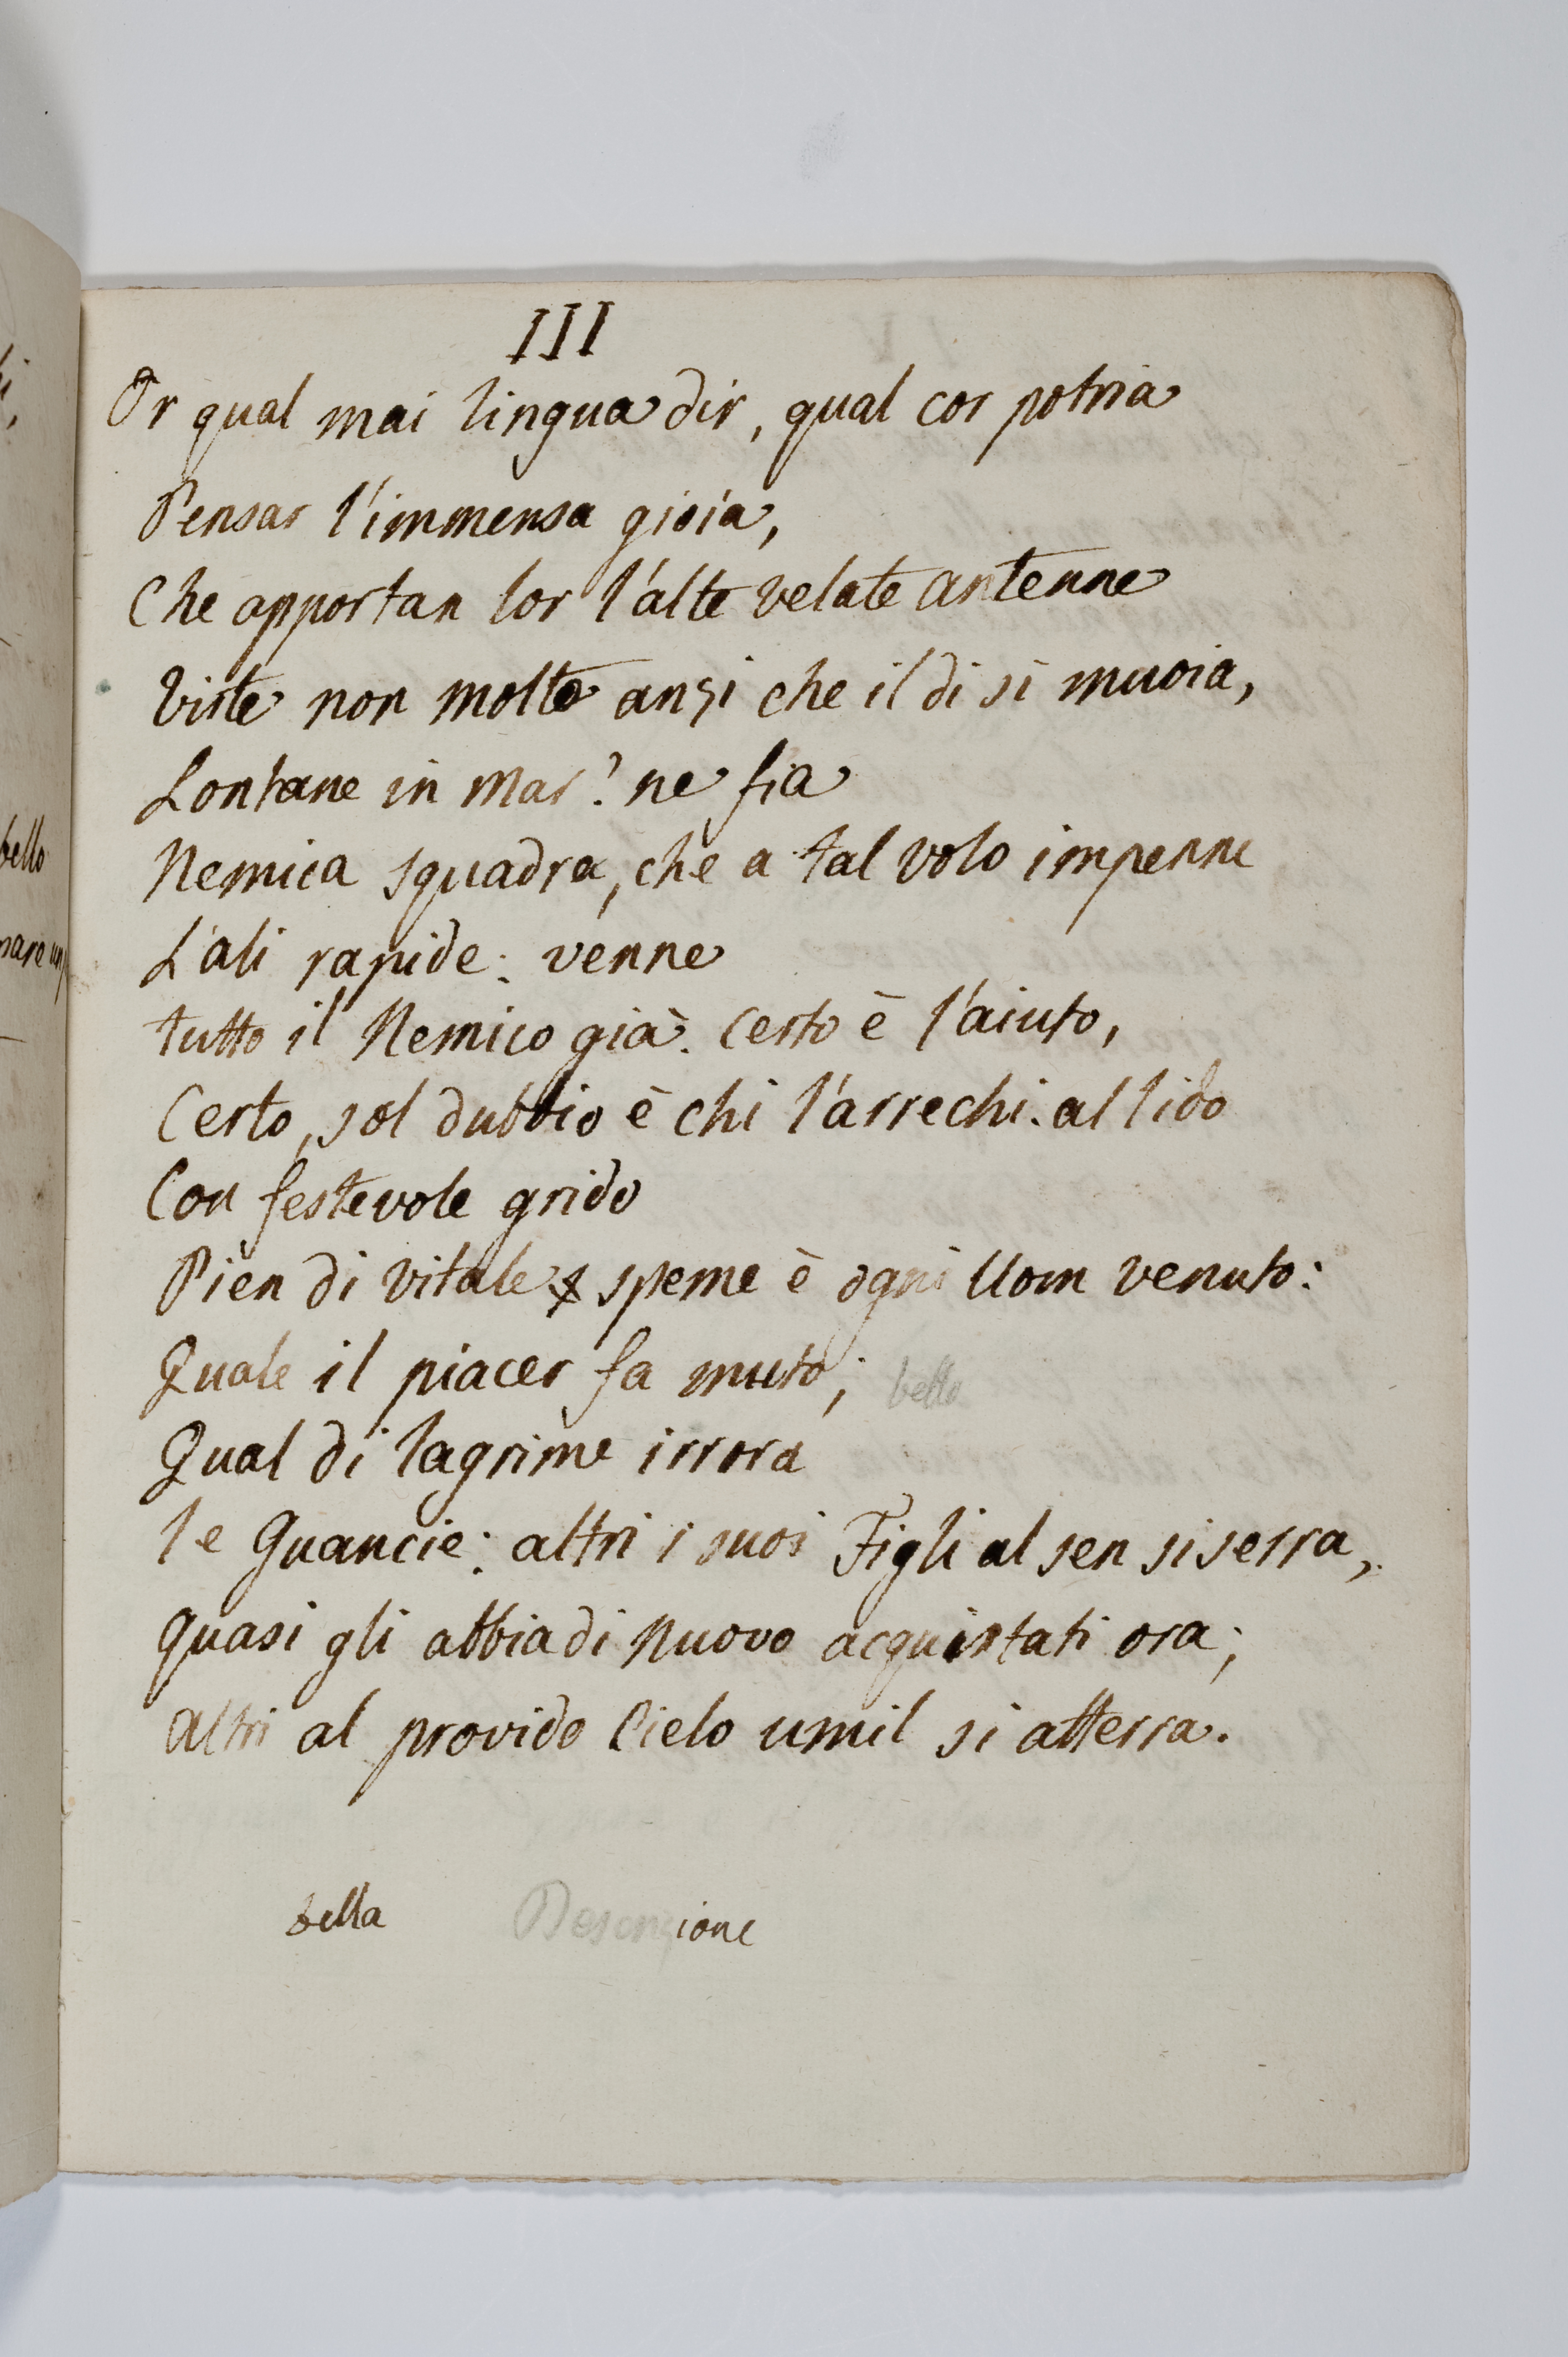 III
Or qual mai lingua dir, qual cor potria
Pensar l'immensa gioia,
Che apportan lor l'alte velate antenne
Viste non molto anzi che il di si muoia,
Lontane in Mar? ne fia
Nemica squadra, che a tal volo impenne
L'ali rapide: venne
tutto il Nemico già. Certo è l'aiuto,
Certo, sol dubbio è chi l'arrechi. al lido
Con festevole grido
Pien di vitale speme è ogni Uom venuto:
Quale il piacer fa muto; bello
Qual di lagrime irrora
le Guancie: altri i suoi Figli al sen si serra,
quasi gli abbia di nuovo acquistati ora;
altri al provido Cielo umil si atterra.
bella Descrizione
bello